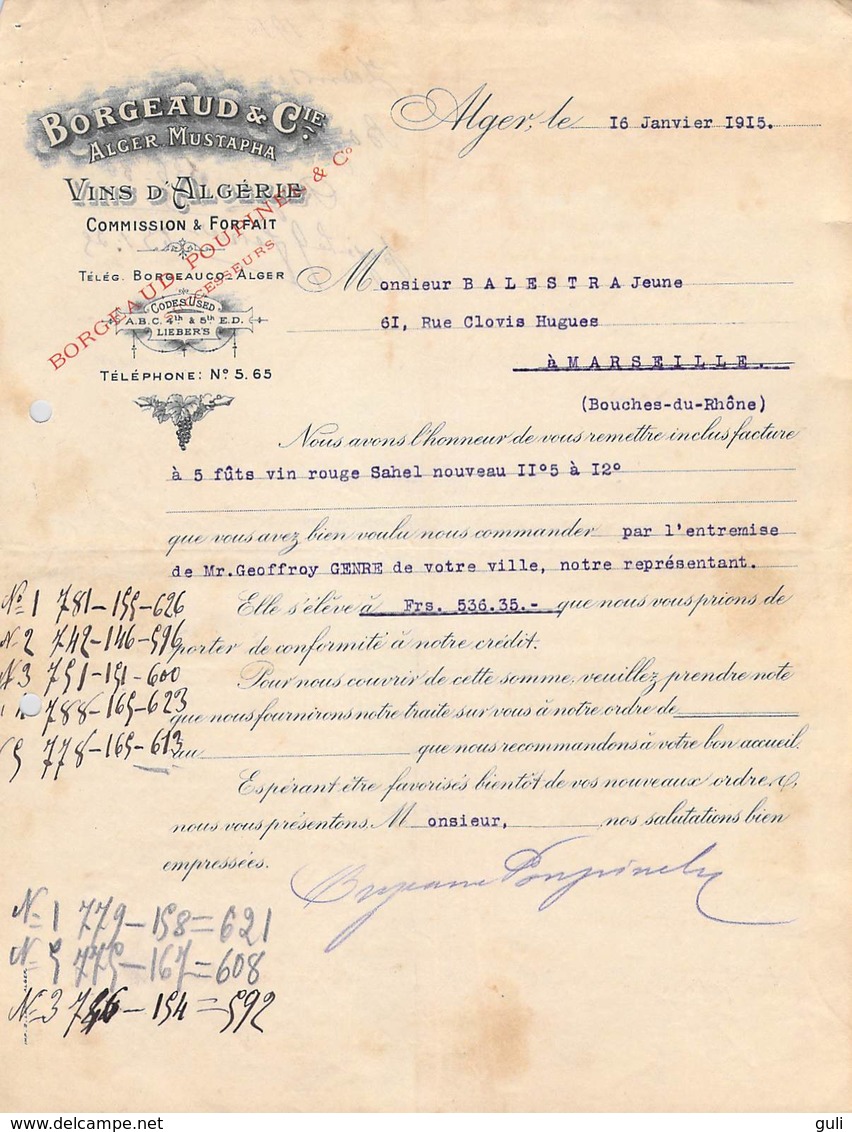 BORGEAUD & CIE
ALGER MUSTAPHA
VINS D'ALGÉRIE
COMMISSION & FORFAIT
TÉLÉG. BORGEAUCO-ALGER
CODES USED
A.B.C. 4th & 5th ED.
LIEBER'S
TÉLÉPHONE: No 5.65
BORGEAUD POUPINEL & Co
SUCCESSEURS
Alger, le 16 Janvier 1915.
Monsieur BALESTRA Jeune
61, Rue Clovis Hugues
à MARSEILLE.
(Bouches-du-Rhône)
Nous avons l'honneur de vous remettre inclus facture
à 5 fûts vin rouge Sahel nouveau II°5 à I2°
que vous avez bien voulu nous commander par l'entremise
de Mr. Geoffroy GENRE de votre ville, notre représentant.
Elle s'élève à Frs. 536.35.- que nous vous prions de
porter de conformité à notre crédit.
Pour nous couvrir de cette somme, veuillez prendre note
que nous fournirons notre traite sur vous à notre ordre de
au que nous recommandons à votre bon accueil.
Espérant être favorisés bientôt de vos nouveaux ordres,
nous vous présentons, Monsieur, nos salutations bien
empressées.
No 1 781-155-626
No 2 742-146-596
No 3 751-151-600
788-165-623
5 778-165-613
No 1 779-158=621
No 5 775-167=608
No 3 746-154=592
guli